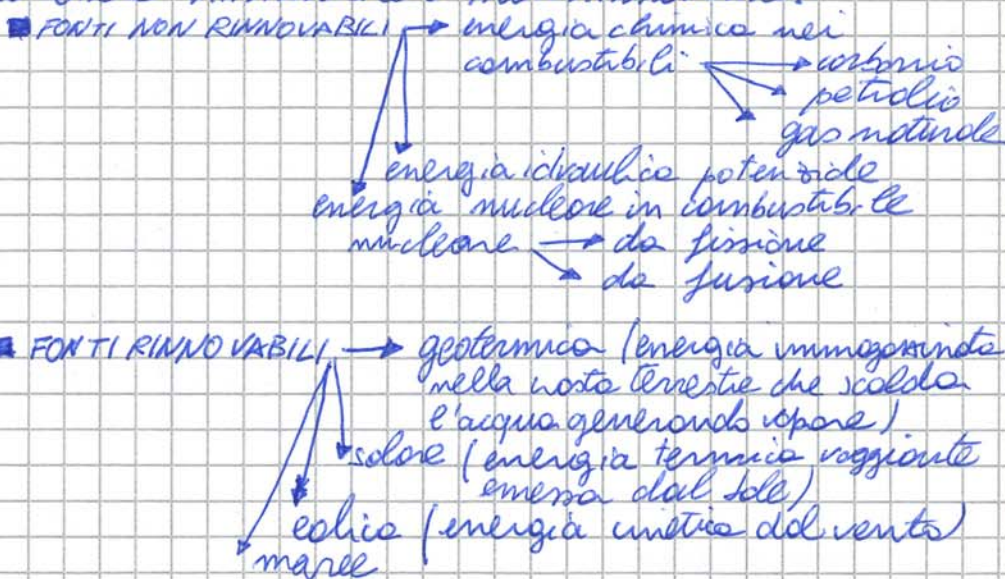 FONTI NON RINNOVABILI → energia chimica nei
combustibili → carbonio
petrolio
gas naturale
energia idraulica potenziale
energia nucleare in combustibile
nucleare → da fissione
da fusione
FONTI RINNOVABILI → geotermica (energia immagazzinata
nella crosta terrestre che scalda
l'acqua generando vapore)
solare (energia termica raggiante
emessa dal sole)
eolica (energia cinetica dal vento)
maree